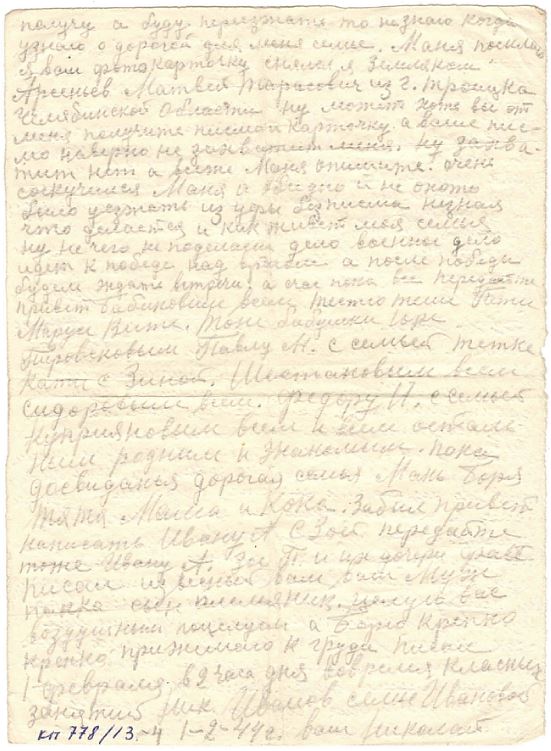 получу а буду переезжать то незнаю когда
узнаю о дорогой для меня семье. Маня посылаю
я вам фотокарточку снялся я Земляком
Арсеньев Матвей Тарасович из г. Троицка
Челябинской области ну может хотя вы от
меня получите письмо и карточку а ваше пис-
мо наверно не захватит меня. ну захва-
тит нет а всиже Маня опишите. Очень
соскучился Маня а обидно и не охото
было уезжать из уфы без письма незная
что делается и как живет моя семья
ну не чего не поделаеш дело военное дело
идет к победе над врагом а после победы
будем ждать встречи. а счас пока все передайте
привет бабиновым всем тестю теще Кати
Маруси Вите. Тоне бабушки
Павлу М. с семьей тетке
Кати с Зиной. Шестановым всем
сидоровым всем. Федору И. с семьей
куприяновым всем и всем осталь
ним родним и знакомым. пока
досвидания дорогая семья Мань Боря
тятя Мама и Кока. Забыл привет
написать Ивану А с Зоей передайте
тоже Ивану А. и их дочери
писал известный вам ваш Муж
папка сын племяник. целую вас
воздушным поцелуям а Борю крепко
крепко прижимаю к груди писал
1 февраля в 2 часа дня вовремя класных
занятий Ник. Иванов семье Ивановой
1-2-44 г. ваш Николай
кп 778/13-4